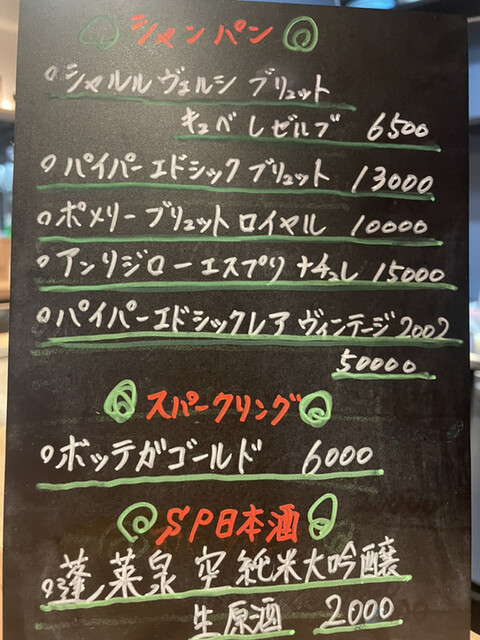 シャンパン
シャルル ヴェルシ ブリュット
キュベ レゼルブ 6500
パイパーエドシック ブリュット 13000
ポメリー ブリュット ロイヤル 10000
アンリジロー エスプリ ナチュレ 15000
パイパーエドシックレア ヴィンテージ2002
50000
スパークリング
ボッテガゴールド 6000
SP日本酒
蓬莱泉 空 純米大吟醸
生原酒 2000